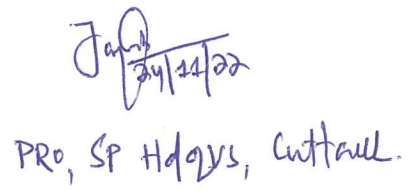 24/11/22
PRO, SP Hdqrs, Cuttack.